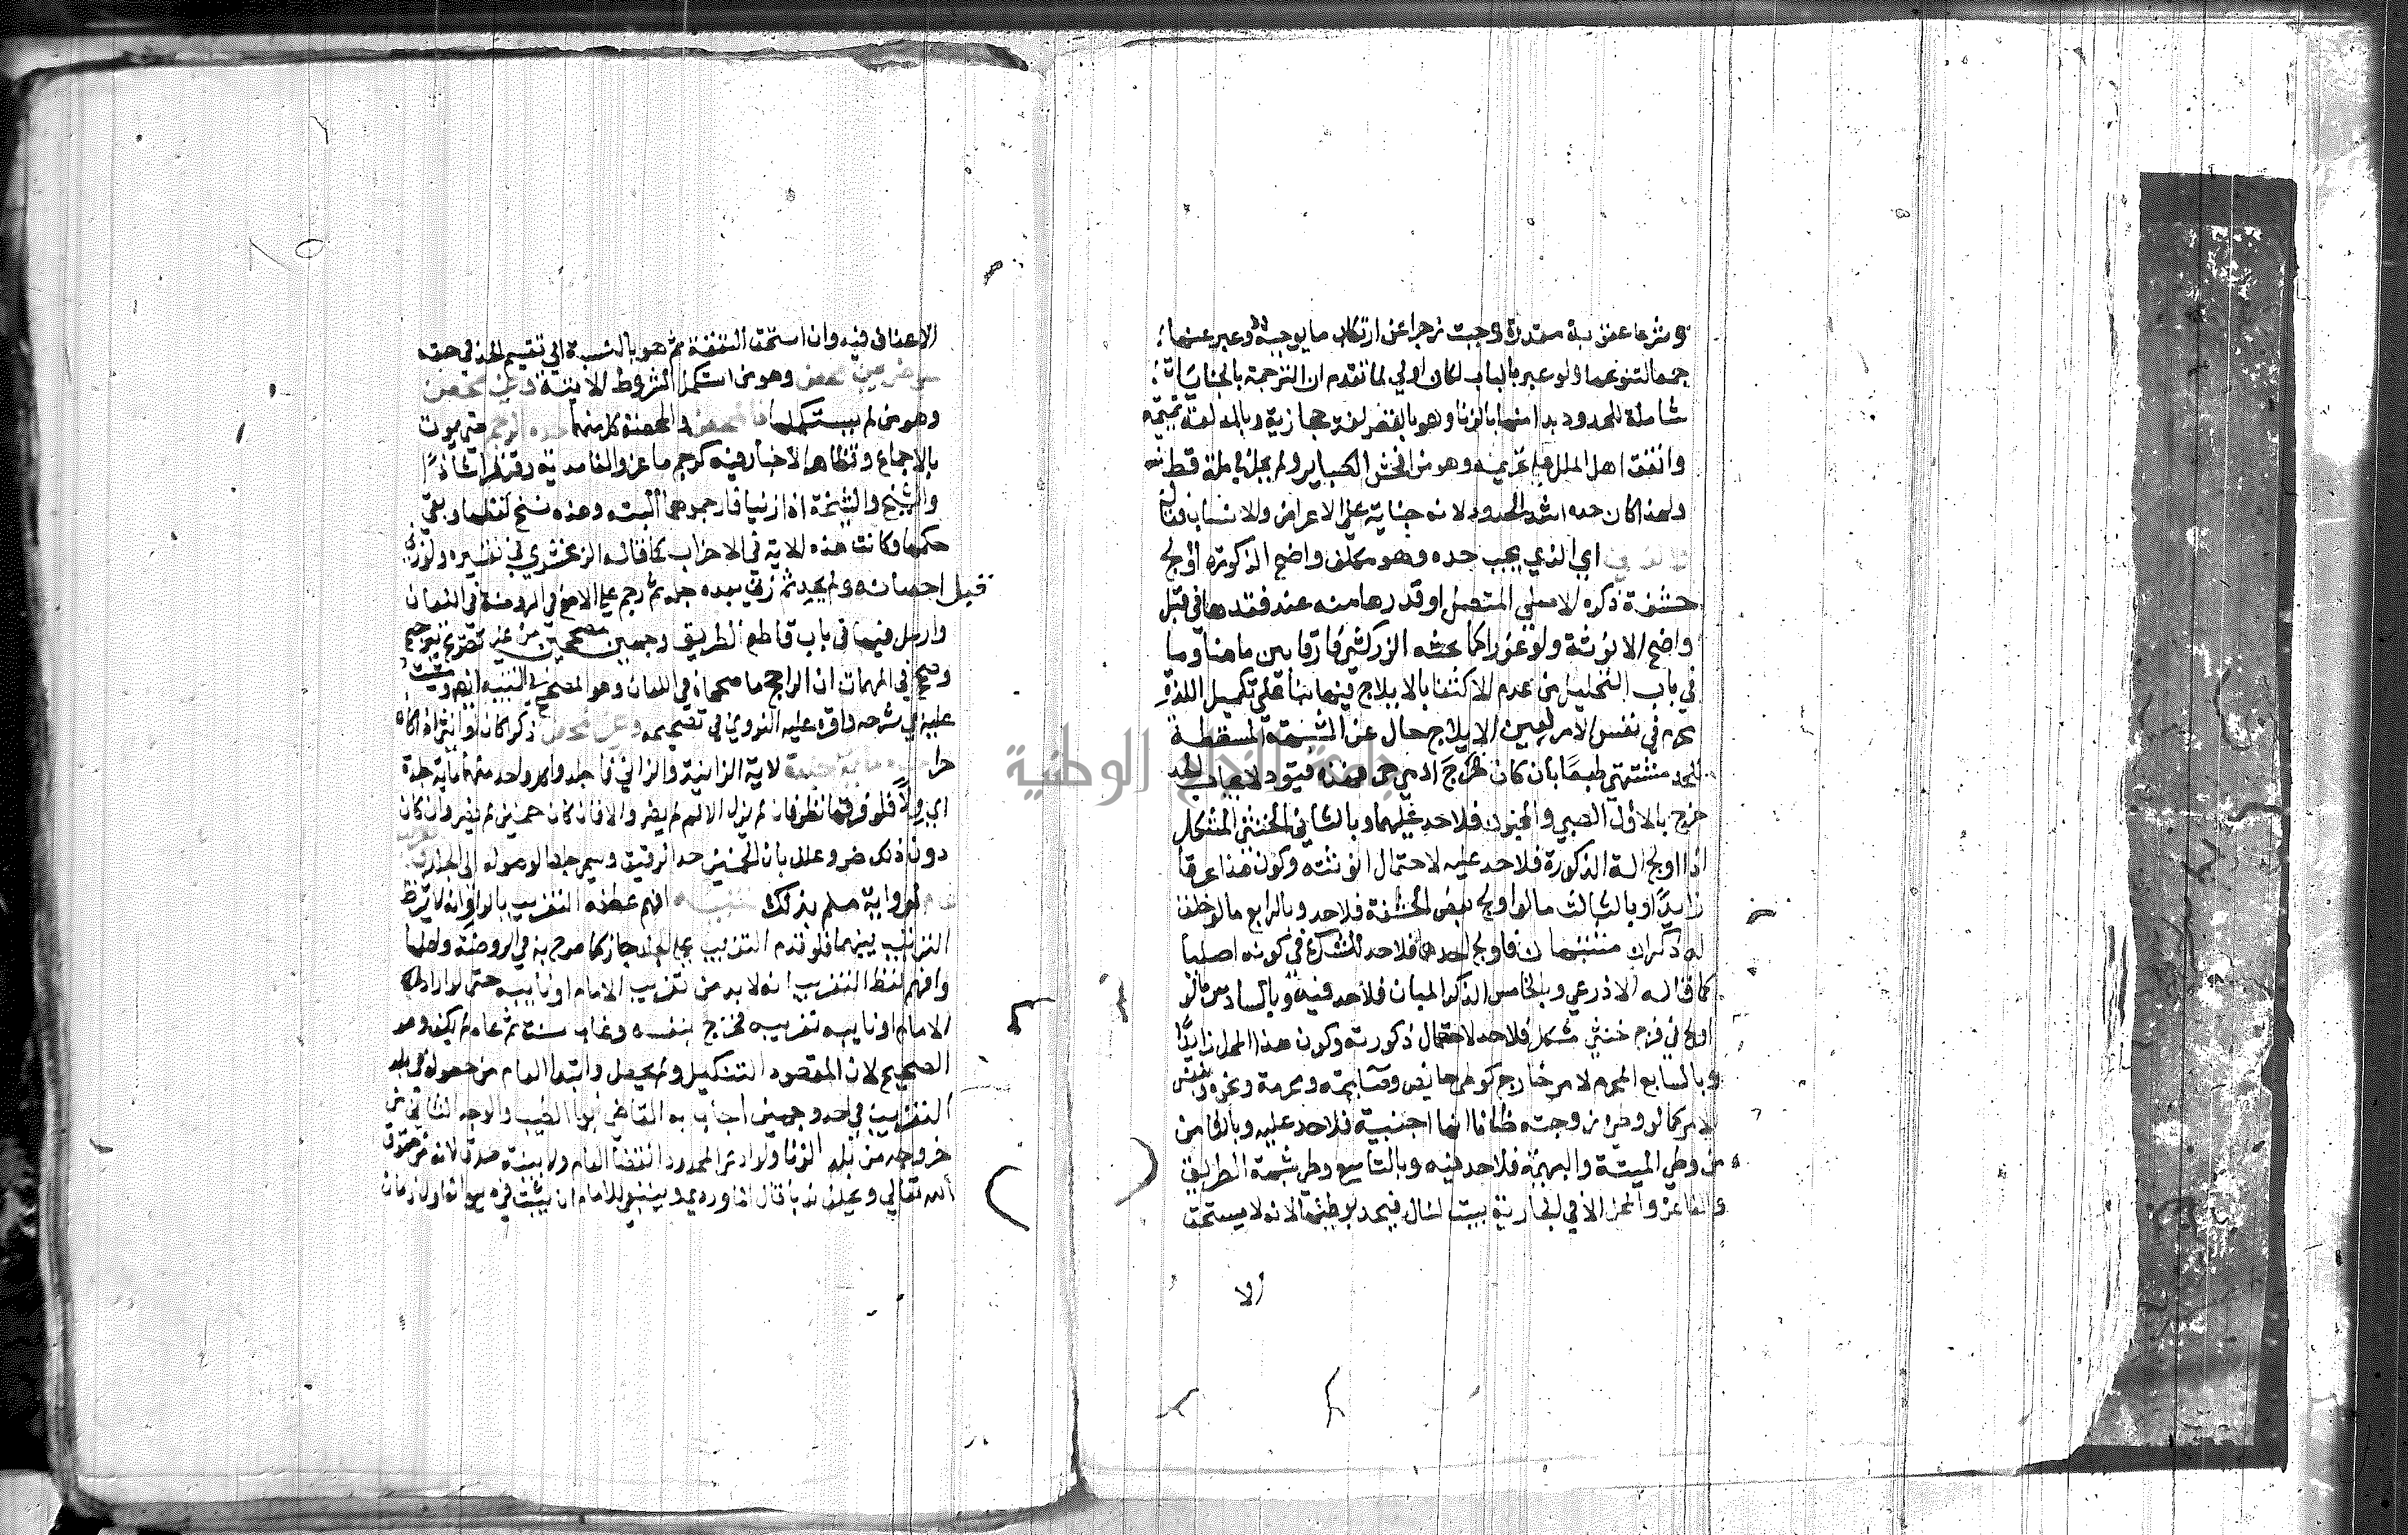 وشرعا عقوبة مقدرة وجبت زجرا عن ارتكاب ما يوجبه وعبر عنها
جمعا لتنوعها ولو عبر بالباب لكان اولي لما تقدم ان الترجمة بالجنايات
شاملة للحدود بدا منها بالزنا وهو بالقصر لغة حجازية وبالمد لغة تميمية
واتفق اهل الملل علي تحريمه وهو من افحش الكباير ولم يحل في ملة قط
ولهذا كان حده اشد الحدود لانه جناية علي الاعراض والانساب فقال
اي الذي يجب حده وهو مكلف واضح الذكورة اولج
حشفة ذكره الاصلي المتصل او قدرها منه عند فقدها في قبل
واضح الانوثة ولو غوراكما بحثه الزركشي فارقا بين ما هنا وما
في باب التحليل من عدم الاكتفا بالايلاج فيها بناء علي تكميل اللذة
محرم في نفس الامر لعين الايلاج خال عن الشبهة المسقطة
للحد مشتهي طبعا بان كان فرج ادمي حي فهذه قيود لايجاب الحد
خرج بالاول الصبي والمجنون فلا حد عليهما وبالثاني الخنثي المشكل
اذا اولج الة الذكورة فلا حد عليه لاحتمال انوثته وكون هذا عرقا
زايدا وبالثالث ما لو اولج بعض الحشفة فلا حد وبالرابع ما لو خلق
له ذكران مشتبهان فاولج احدهما فلا حد للشك في كونه اصليا
كما قاله الاذرعي وبالخامس الذكر المبان فلا حد فيه وبالسادس ما لو
اولج في فرج خنثي مشكل فلا حد لاحتمال ذكورته وكون هذا المحل زايدا
وبالسابع المحرم لامر خارج كوطي حايض وصايمة ومحرمة ونحوه وبنفس
الامر كما لو وطي زوجته ظانا انها اجنبية فلا حد عليه وبالثامن
من وطي الميتة والبهيمة فلا حد فيه وبالتاسع وطي شبهة الطريق
والفاعل والمحل الا في جارية بيت المال فيحد بوطئها لانه لا يستحق
الا
الاعفاف فيه وان استحق النفقة ثم هو بالنسبة الي تقسيم الحد في حقه
وهو من استكمل الشروط الاتية وغير محصن
وهو من لم يستكملها والمحصنة كل منهما حده الرجم حتي يموت
بالاجماع وتظاهر الاخبار فيه كرجم ماعز والغامدية وقري شاذا
والشيخ والشيخة اذا زنيا فارجموهما البتة وهذه نسخ لفظها وبقي
حكمها وكانت هذه الاية في الاحزاب كما قاله الزمخشري في تفسيره ولو زني
قبل احصانه ولم يحد ثم زني بعده جلد ثم رجم علي الاصح في الروضة في اللعان
وارسل فيها في باب قاطع الطريق وجهين مصححين من غير تصريح بترجيح
وصحح في المهمات ان الراجح ما صححاه في اللعان وهو المصحح في التنبيه
عليه في شرحه واقره عليه النووي في تصحيحه وغير المحصن ذكرا كان او انثي اذا كان
حرا لاية الزانية والزاني فاجلدوا كل واحد منهما ماية جلدة
اي ولا فلو فرقها نظر فان لم يزل الالم لم يضر والا فان كان خمسين لم يضر وان كان
دون ذلك ضر وعلل بان الخمسين حد الرقيق وسمي جلدا لوصوله الي الجلد
لرواية مسلم بذلك افهم عطفه التغريب بالواو انه لا يشترط
الترتيب بينهما فلو قدم التغريب علي الجلد جاز كما صرح به في الروضة واصلها
وافهم لفظ التغريب انه لا بد من تغريب الامام او نايبه حتي لو اراد
الامام او نايبه تغريبه فخرج بنفسه وغاب سنة ثم عاد لم يكف وهو
الصحيح لان المقصود التنكيل ولم يحصل وابتدا العام من حصوله في بلد
التغريب في احد وجهين اجاب به القاضي ابو الطيب والوجه الثاني من
خروجه من بلد الزنا ولو ادعي المحدود انقضا العام ولا بينة صدق لانه من حقوق
الله تعالي ويحلف ندبا قال الماوردي وينبغي للامام ان يثبت في ديوانه اول زمان